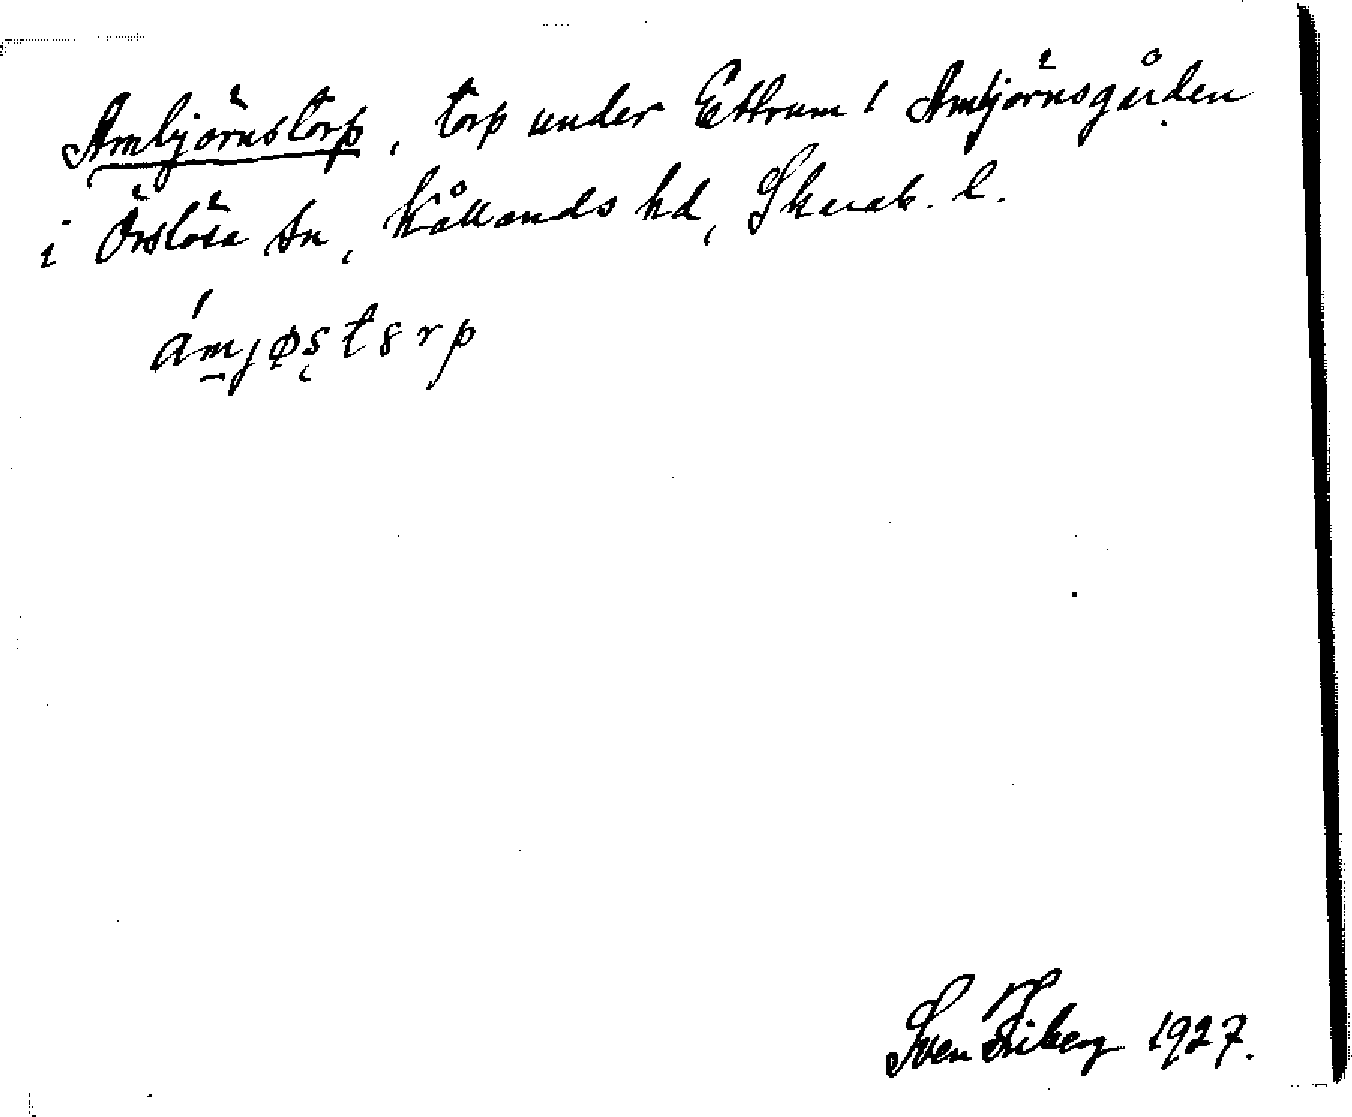 Ambjörnstorp, torp under Ettrum l Ambjörnsgården
i Örslösa sn, Kållands hd, Skarab. l.
ámjøstərp
Sven Friberg 1927.